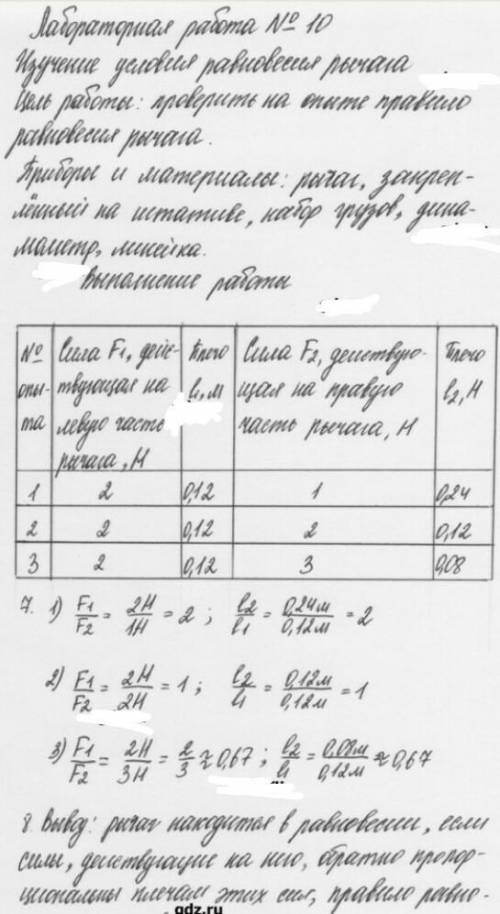 Лабораторная работа № 10
Изучение условия равновесия рычага
Цель работы: проверить на опыте правило
равновесия рычага.
Приборы и материалы: рычаг, закреп-
лённый на штативе, набор грузов, дина-
мометр, линейка.
Выполнение работы
№ опы- та | Сила F₁, дейс- твующая на левую часть рычага, Н | Плечо l₁, м | Сила F₂, действую- щая на правую часть рычага, Н | Плечо l₂, Н
1 | 2 | 0,12 | 1 | 0,24
2 | 2 | 0,12 | 2 | 0,12
3 | 2 | 0,12 | 3 | 0,08
7. 1) F₁/F₂ = 2Н/1Н = 2 ; l₂/l₁ = 0,24м/0,12м = 2
2) F₁/F₂ = 2Н/2Н = 1 ; l₂/l₁ = 0,12м/0,12м = 1
3) F₁/F₂ = 2Н/3Н = 2/3 ≈ 0,67 ; l₂/l₁ = 0,08м/0,12м ≈ 0,67
8. Вывод: рычаг находится в равновесии, если
силы, действующие на него, обратно пропор-
циональны плечам этих сил, правило равно-
gdz.ru